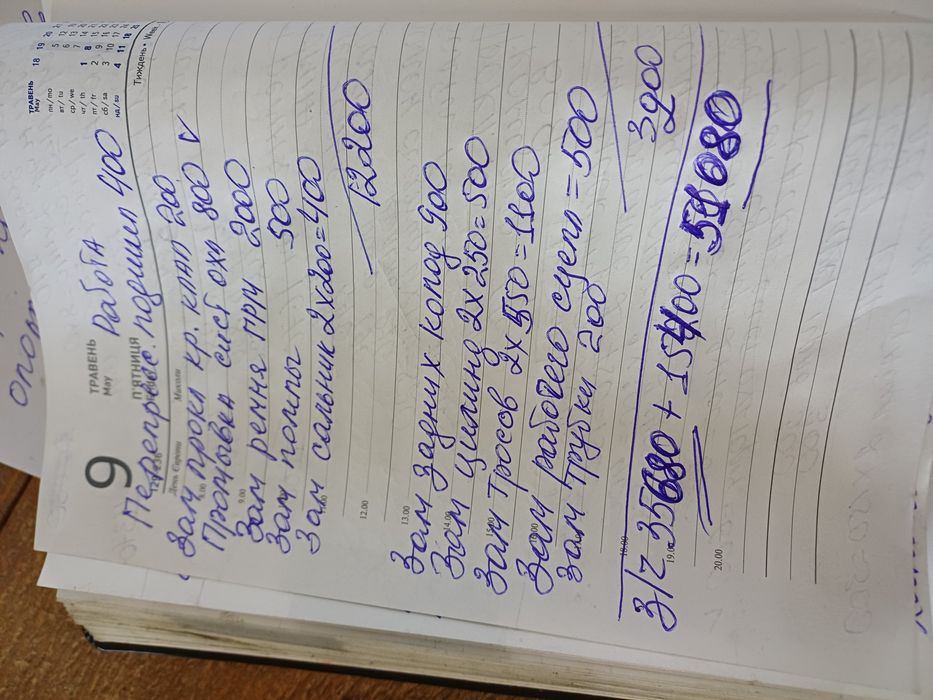 9
ТРАВЕНЬ
May
П'ЯТНИЦЯ
День Європи
Миколи
ТРАВЕНЬ
May
18 19 20
пн / mo 5 12
вт / tu 6 13
ср / we 7 14
чт / th 1 8 15
пт / fr 2 9 16
сб / sa 3 10 17
нд / su 4 11 18 25
Тиждень • Week
Работа
Перепрес. подшип 400
Зам прокл кр. клап 200
Промывка сист охл 800 V
Зам ремня ГРМ 2000
Зам помпы 500
Зам сальник 2х200=400
12200
Зам задних колод 900
Зам цилинд 2х250=500
Зам тросов 2х550=1100
Зам рабочего сцепл =500
Зам трубки 200
3200
З/ч 35680 + 15400 = 51080
9.00
12.00
13.00
14.00
18.00
19.00
20.00